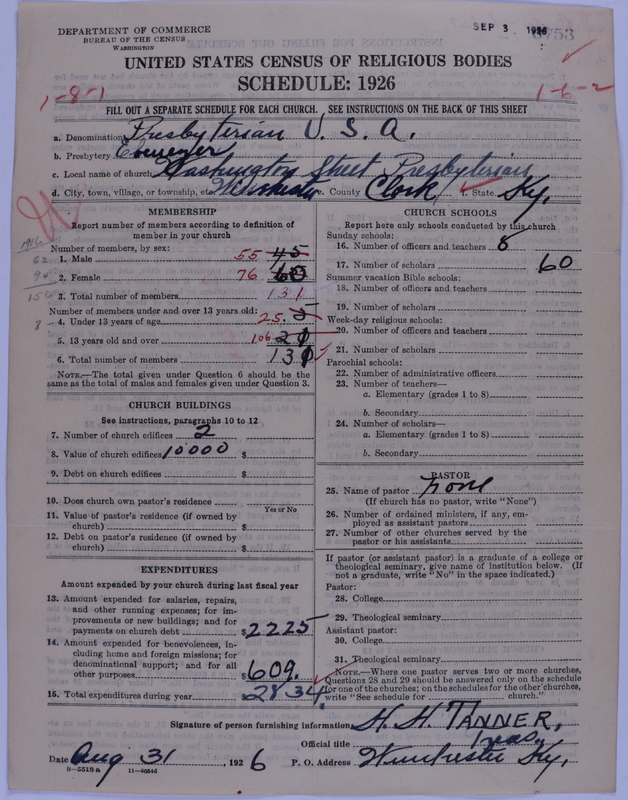 DEPARTMENT OF COMMERCE
BUREAU OF THE CENSUS
WASHINGTON
SEP 3 1926
6753
UNITED STATES CENSUS OF RELIGIOUS BODIES
SCHEDULE: 1926
1-8-1
1-6-2
FILL OUT A SEPARATE SCHEDULE FOR EACH CHURCH. SEE INSTRUCTIONS ON THE BACK OF THIS SHEET
a. Denomination Presbyterian U. S. A.
b. Presbytery Ebenezer
c. Local name of church Washington Street Presbyterian
d. City, town, village, or township, etc. Winchester e. County Clark f. State Ky.
MEMBERSHIP
Report number of members according to definition of member in your church
Number of members, by sex:
1. Male 55 45
2. Female 76 60
3. Total number of members 131
Number of members under and over 13 years old:
4. Under 13 years of age 25. 5
5. 13 years old and over 106
6. Total number of members 13
1916
62
94
156
8
NOTE.—The total given under Question 6 should be the same as the total of males and females given under Question 3.
CHURCH BUILDINGS
See instructions, paragraphs 10 to 12
7. Number of church edifices 2
8. Value of church edifices 10000 $
9. Debt on church edifices $
10. Does church own pastor's residence
Yes or No
11. Value of pastor's residence (if owned by church) $
12. Debt on pastor's residence (if owned by church) $
EXPENDITURES
Amount expended by your church during last fiscal year
13. Amount expended for salaries, repairs, and other running expenses; for improvements or new buildings; and for payments on church debt $2225
14. Amount expended for benevolences, including home and foreign missions; for denominational support; and for all other purposes $609.
15. Total expenditures during year 2834
CHURCH SCHOOLS
Report here only schools conducted by this church
Sunday schools:
16. Number of officers and teachers 8
17. Number of scholars 60
Summer vacation Bible schools:
18. Number of officers and teachers
19. Number of scholars
Week-day religious schools:
20. Number of officers and teachers
21. Number of scholars
Parochial schools:
22. Number of administrative officers
23. Number of teachers—
a. Elementary (grades 1 to 8)
b. Secondary
24. Number of scholars—
a. Elementary (grades 1 to 8)
b. Secondary
PASTOR
25. Name of pastor none
(If church has no pastor, write "None")
26. Number of ordained ministers, if any, employed as assistant pastors
27. Number of other churches served by the pastor or his assistants
If pastor (or assistant pastor) is a graduate of a college or theological seminary, give name of institution below. (If not a graduate, write "No" in the space indicated.)
Pastor:
28. College
29. Theological seminary
Assistant pastor:
30. College
31. Theological seminary
NOTE.—Where one pastor serves two or more churches, Questions 28 and 29 should be answered only on the schedule for one of the churches; on the schedules for the other churches, write "See schedule for church."
Signature of person furnishing information H. H. TANNER,
Official title Treas.
Date Aug 31, 1926 P. O. Address Winchester Ky.
8-5518 a 11-9054d